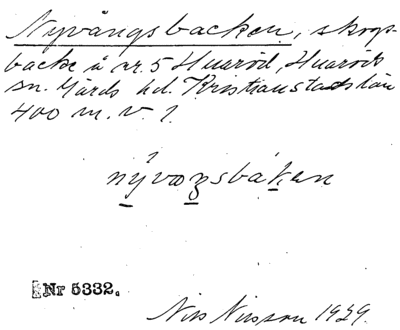 Nyvångsbacken, skogs-
backe å nr. 5 Huaröd, Huaröds
sn. Gärds hd. Kristianstads län
400 m. v. 1.
nývꝏŋsbákan
Nr 5332.
Nils Nilsson 1929.